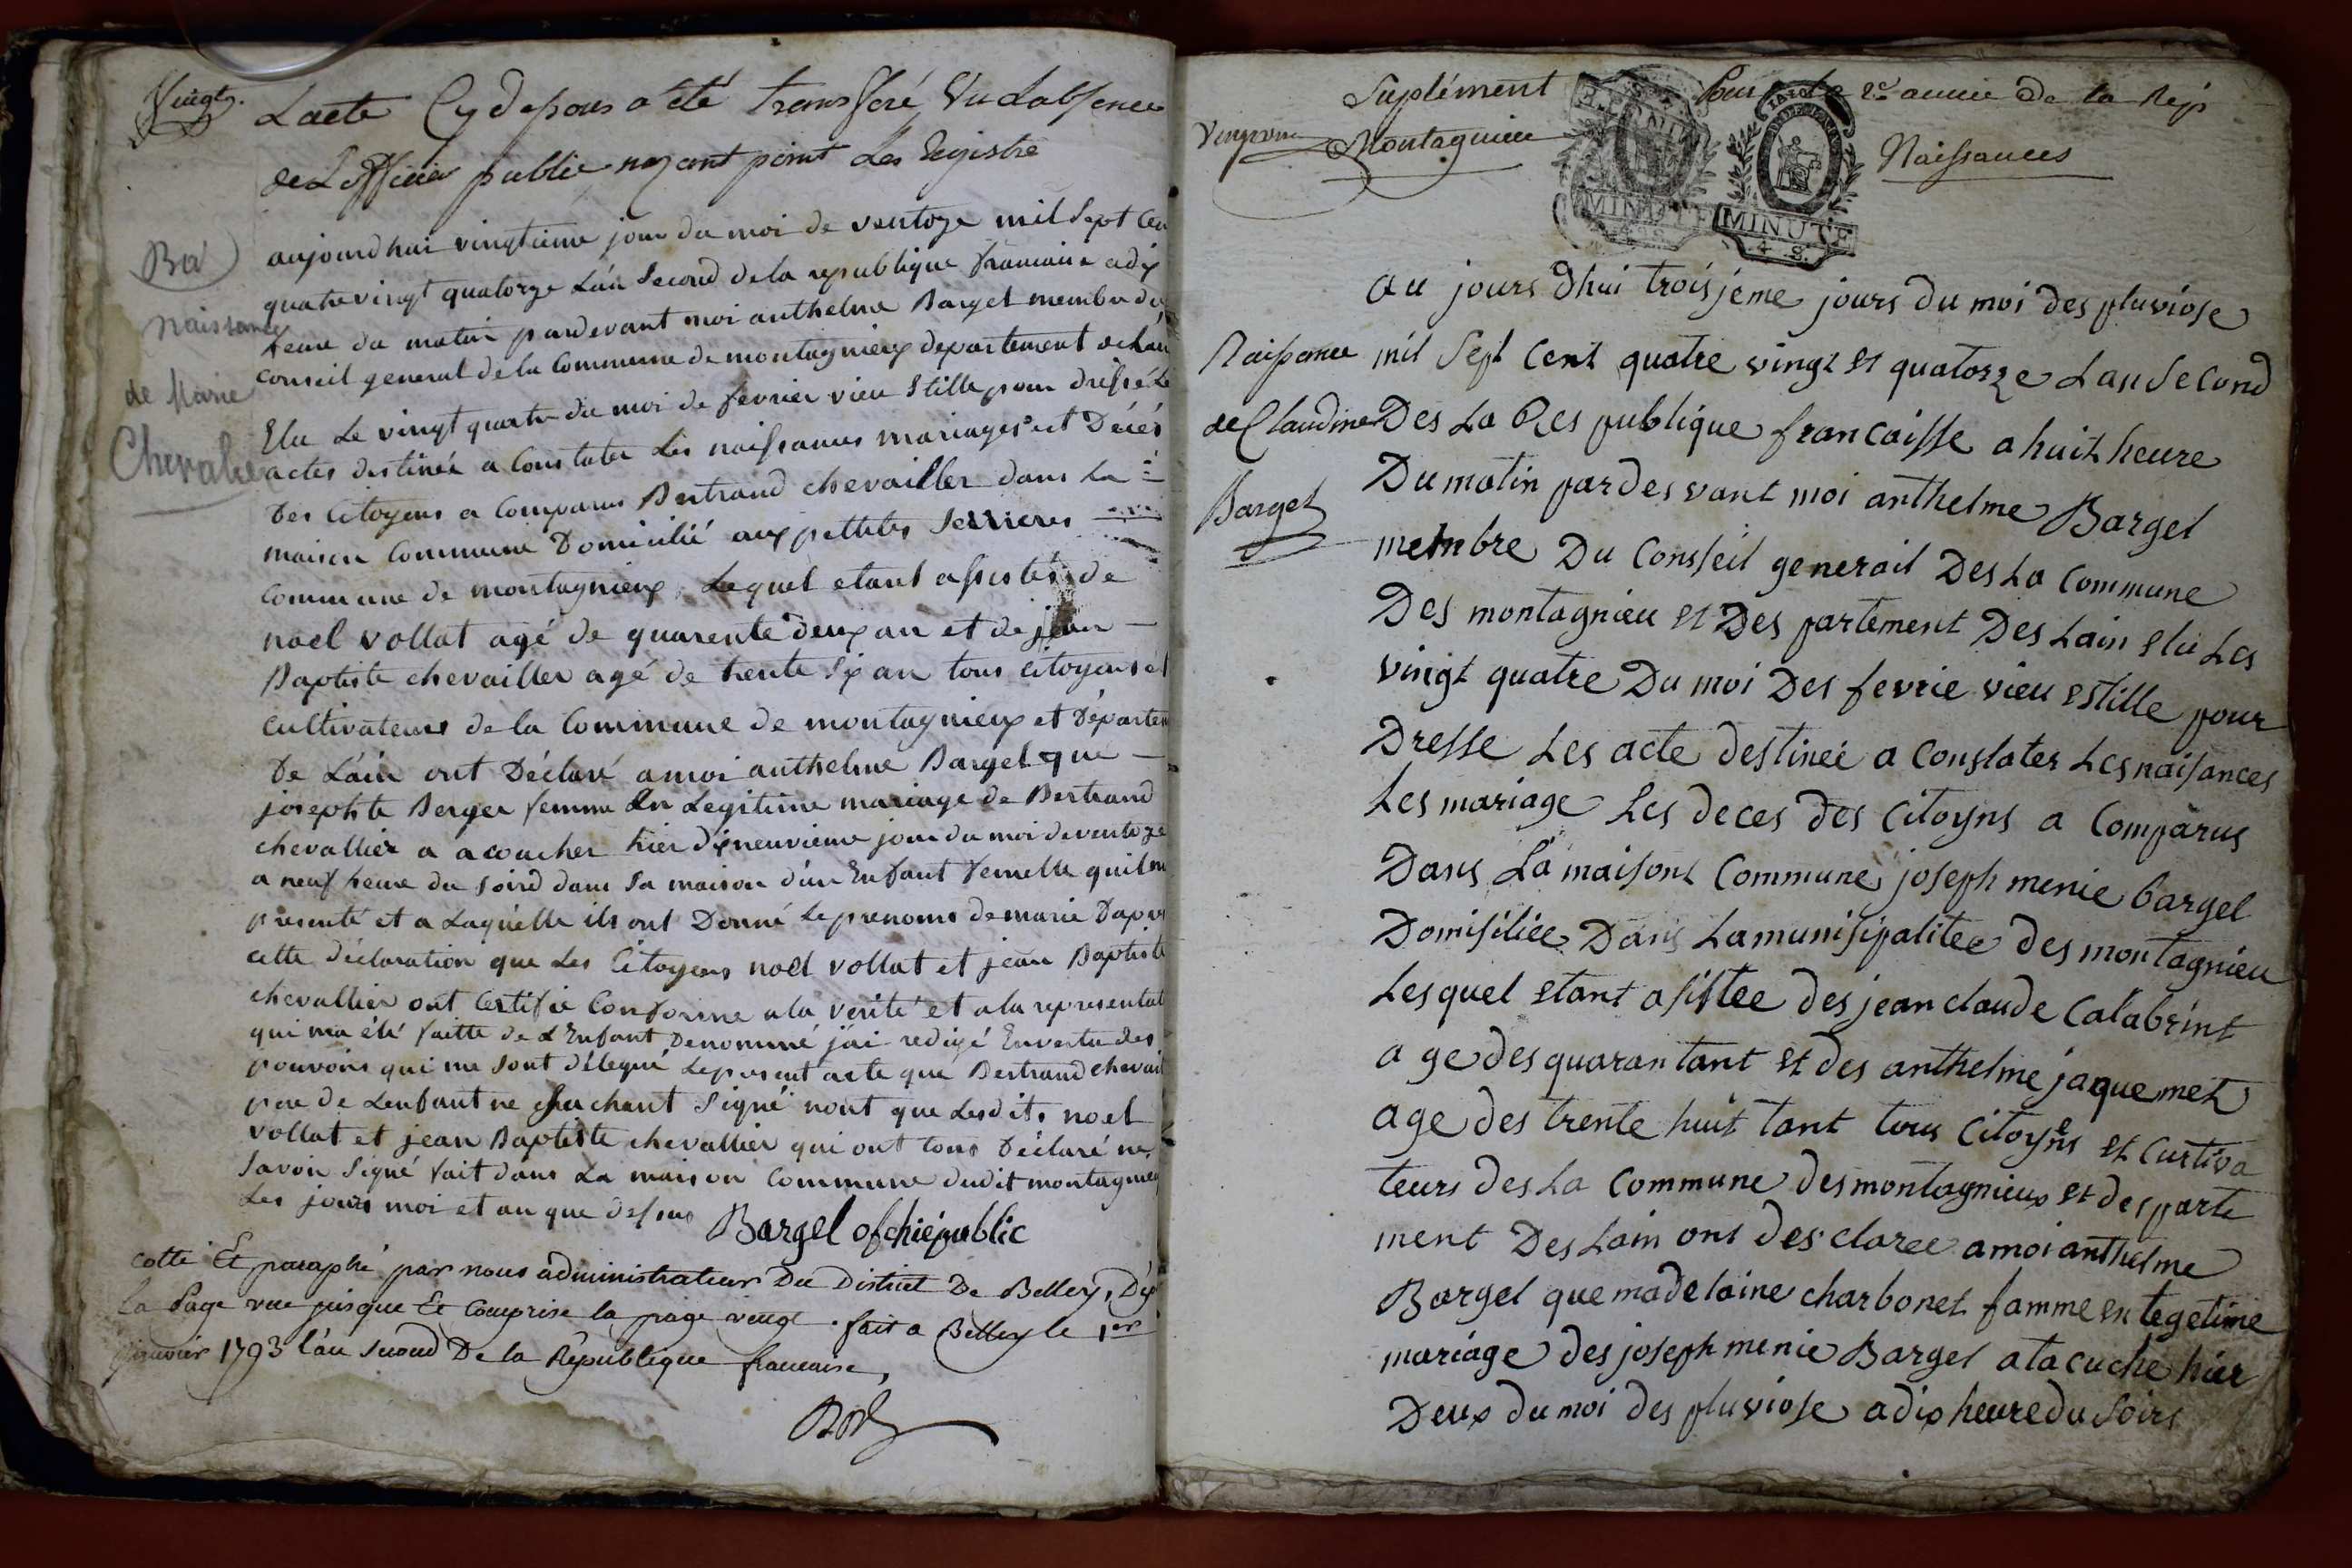 Vingt.
L'acte Cy depous a été transferé, Vu L'absence
de L'officier public nayant point Les Registre
Ba
naissance
de Marie
Chevalier
aujourdhui vingtieme jour du moi de ventoze mil Sept Cen
quatrevingt quatorze L'an Second dela republique francaise a dix
heure du matin pardevant moi anthelme Bargel membre du
conseil general dela Commune de montagnieux departement de L'ain
Elu Le vingt quatre du moi de fevrier vieu Stille pour dressé Le
actes destinée a Constater Les naissances mariages et Décés
Des Citoyens a Comparus Bertrand chevailler dans La
maison Commune Domicilié aux pettites Serrieres
Commune de montagnieux, Lequel etant assisté de
noel vollat agé de quarente deux an et de jean
Baptiste chevailler agé de trente Six an tous citoyens et
cultivateurs de la Commune de montagnieux et Départem
De L'ain ont Déclaré amoi anthelme Bargel que
josephte Berger femme En Legitime mariage de Bertrand
chevallier a acoucher hier dixneuvieme jour du moi de ventoze
a neuf heure du soird dans Sa maison d'un Enfant femelle quil ma
presenté et a Laquelle ils ont Donné Le prenoms de marie Dapres
cette déclaration que Les Citoyens noel vollat et jean Baptiste
chevallier ont Certifie Conforme ala verité et ala representat
qui ma été faitte de L'Enfant Denommé j'ai redigé Envertu des
pouvoirs qui me sont délegué Lepresent acte que Bertrand chevail
pere de Lenfant ne chachant Signé nont que Lesdits noel
vollat et jean Baptiste chevallier qui ont tous Déclaré ne
Savoir Signé fait dans La maison Commune dudit montagnieu
Les jours moi et an que dessus Bargel ofchié public
cotté Et paraphé par nous administrateur Du District De Belley, Dep
la Page une jusque Et Comprise la page vingt. fait a Belley le 1er
janvier 1793 l'an second De la République francaise,
Suplément Pour la 2e. année De la Rep
vingt une Montagnieu Naissances
MINUTE
4. S.
MINUTE
4. S.
Naissance
de Claudine
Bargel
au jours dhui troisjéme jours du moi des pluviose
mil Sept Cent quatre vingt et quatorze L an Second
Des La Res publique francaisse a huit heure
Du matin par des vant moi anthelme Bargel
membre Du Consseil generail Des La Commune
Des montagnieu et Des partement Des Lain elu Les
vingt quatre Du moi Des fevrie vieu estille pour
Dresse Les acte destineé a Constater Les naisances
Les mariage Les deces des Citoyns a Comparus
Dans La maisons Commune joseph menie bargel
Domisiliée Dans La munisipalitee des montagnieu
Lesquel etant asistee des jean claude Calabrint
a ge des quarantant et des anthelme jaquemet
age des trente huit tant tous Citoyens et Cultiva
teurs des La Commune des montagnieux et des parte
ment Des Lain ons des claree amoi anthelme
Bargel que madelaine charbonet famme en legetime
mariage des joseph menie Bargel atacuche hier
Deux du moi des pluviose a dix heure du Soirs